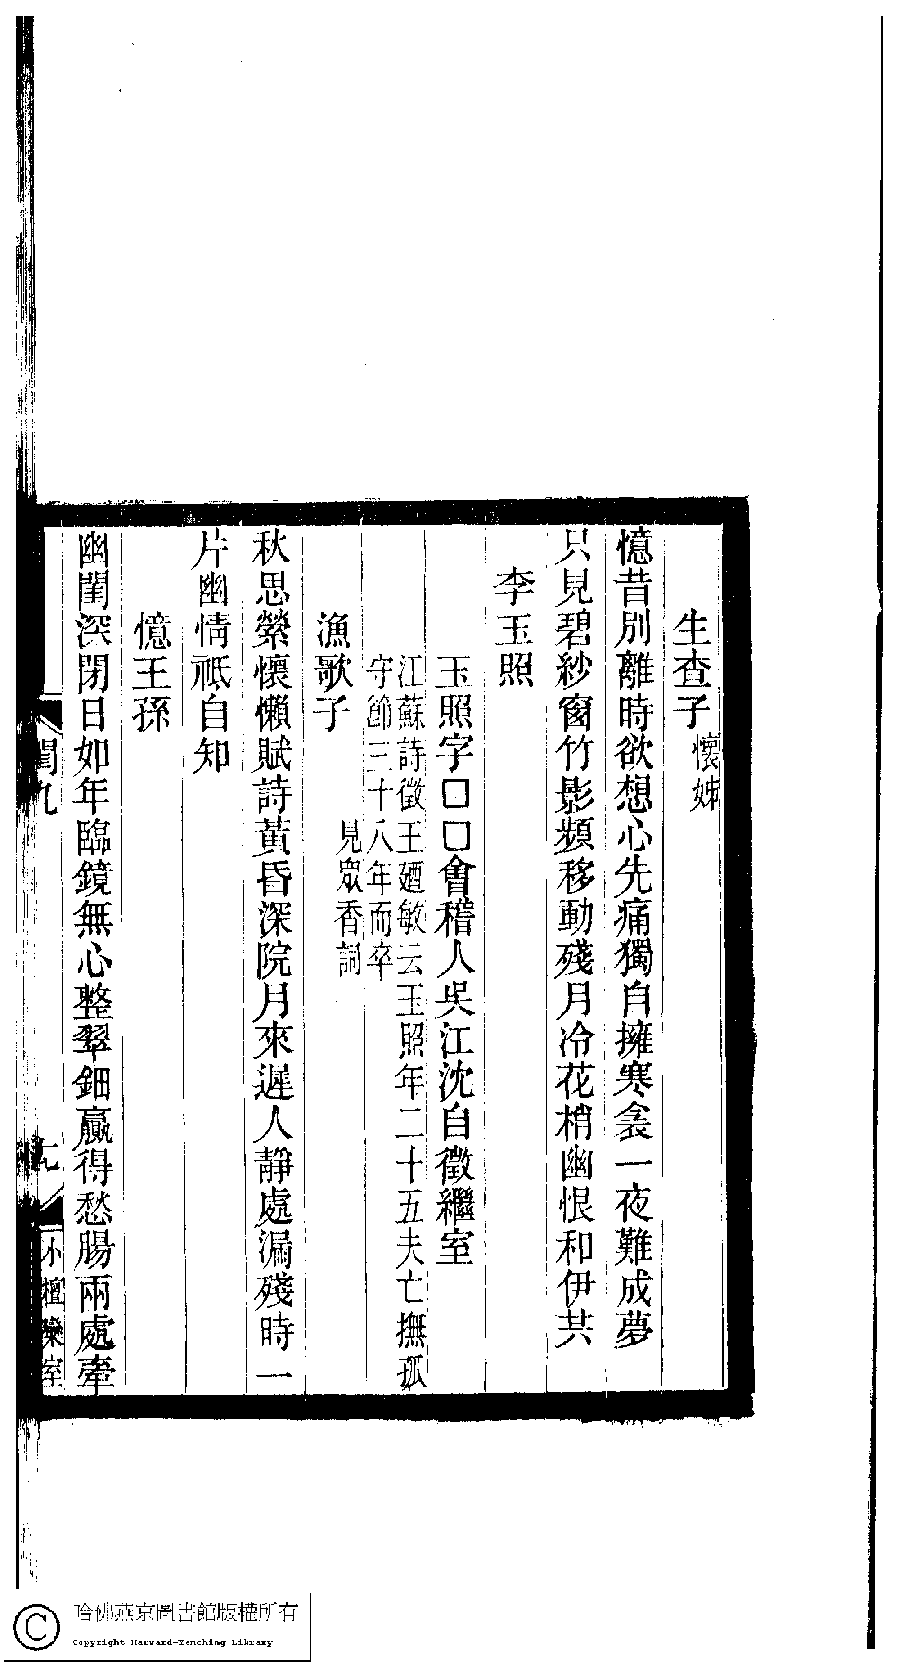 生查子懷姊
憶昔別離時欲想心先痛獨自擁寒衾一夜難成夢
只見碧紗窗竹影頻移動殘月冷花梢幽恨和伊共
李玉照
玉照字□□會稽人吳江沈自徵繼室
江蘇詩徵王廼敏云玉照年二十五夫亡撫孤
守節三十八年而卒
見眾香詞
漁歌子
秋思縈懷懶賦詩黃昏深院月來遲人靜處漏殘時一
片幽情祗自知
憶王孫
幽閨深閉日如年臨鏡無心整翠鈿贏得愁腸兩處牽
閨九
小檀欒室
哈佛燕京圖書館版權所有
Copyright Harvard-Yenching Library